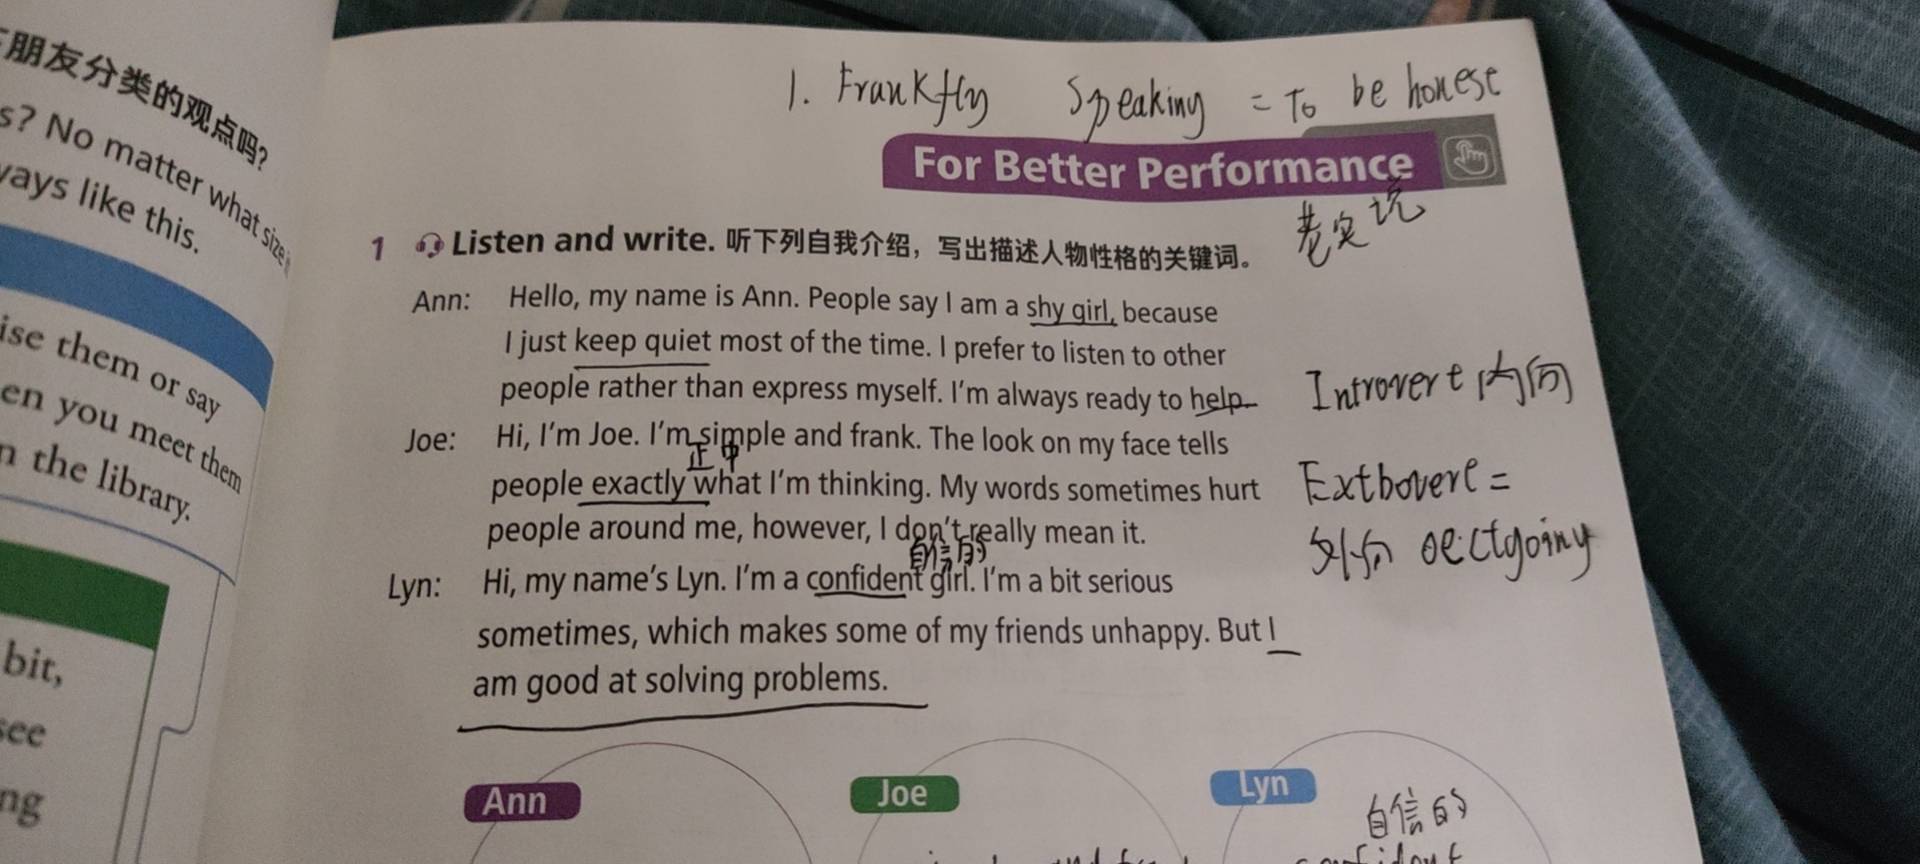 朋友分类的观点吗?
s? No matter what size
ways like this.
ise them or say
en you meet them
n the library.
bit,
see
ng
1. Frankfly Speaking = To be honese
For Better Performance
老实说
1 Listen and write. 听下列自我介绍，写出描述人物性格的关键词。
Ann: Hello, my name is Ann. People say I am a shy girl, because
I just keep quiet most of the time. I prefer to listen to other
people rather than express myself. I'm always ready to help.
Introvert 内向
Joe: Hi, I'm Joe. I'm simple and frank. The look on my face tells
正中
people exactly what I'm thinking. My words sometimes hurt
Extbovere =
people around me, however, I don't really mean it.
外向 oectgoiny
自信的
Lyn: Hi, my name's Lyn. I'm a confident girl. I'm a bit serious
sometimes, which makes some of my friends unhappy. But I
am good at solving problems.
Ann
Joe
Lyn
自信的